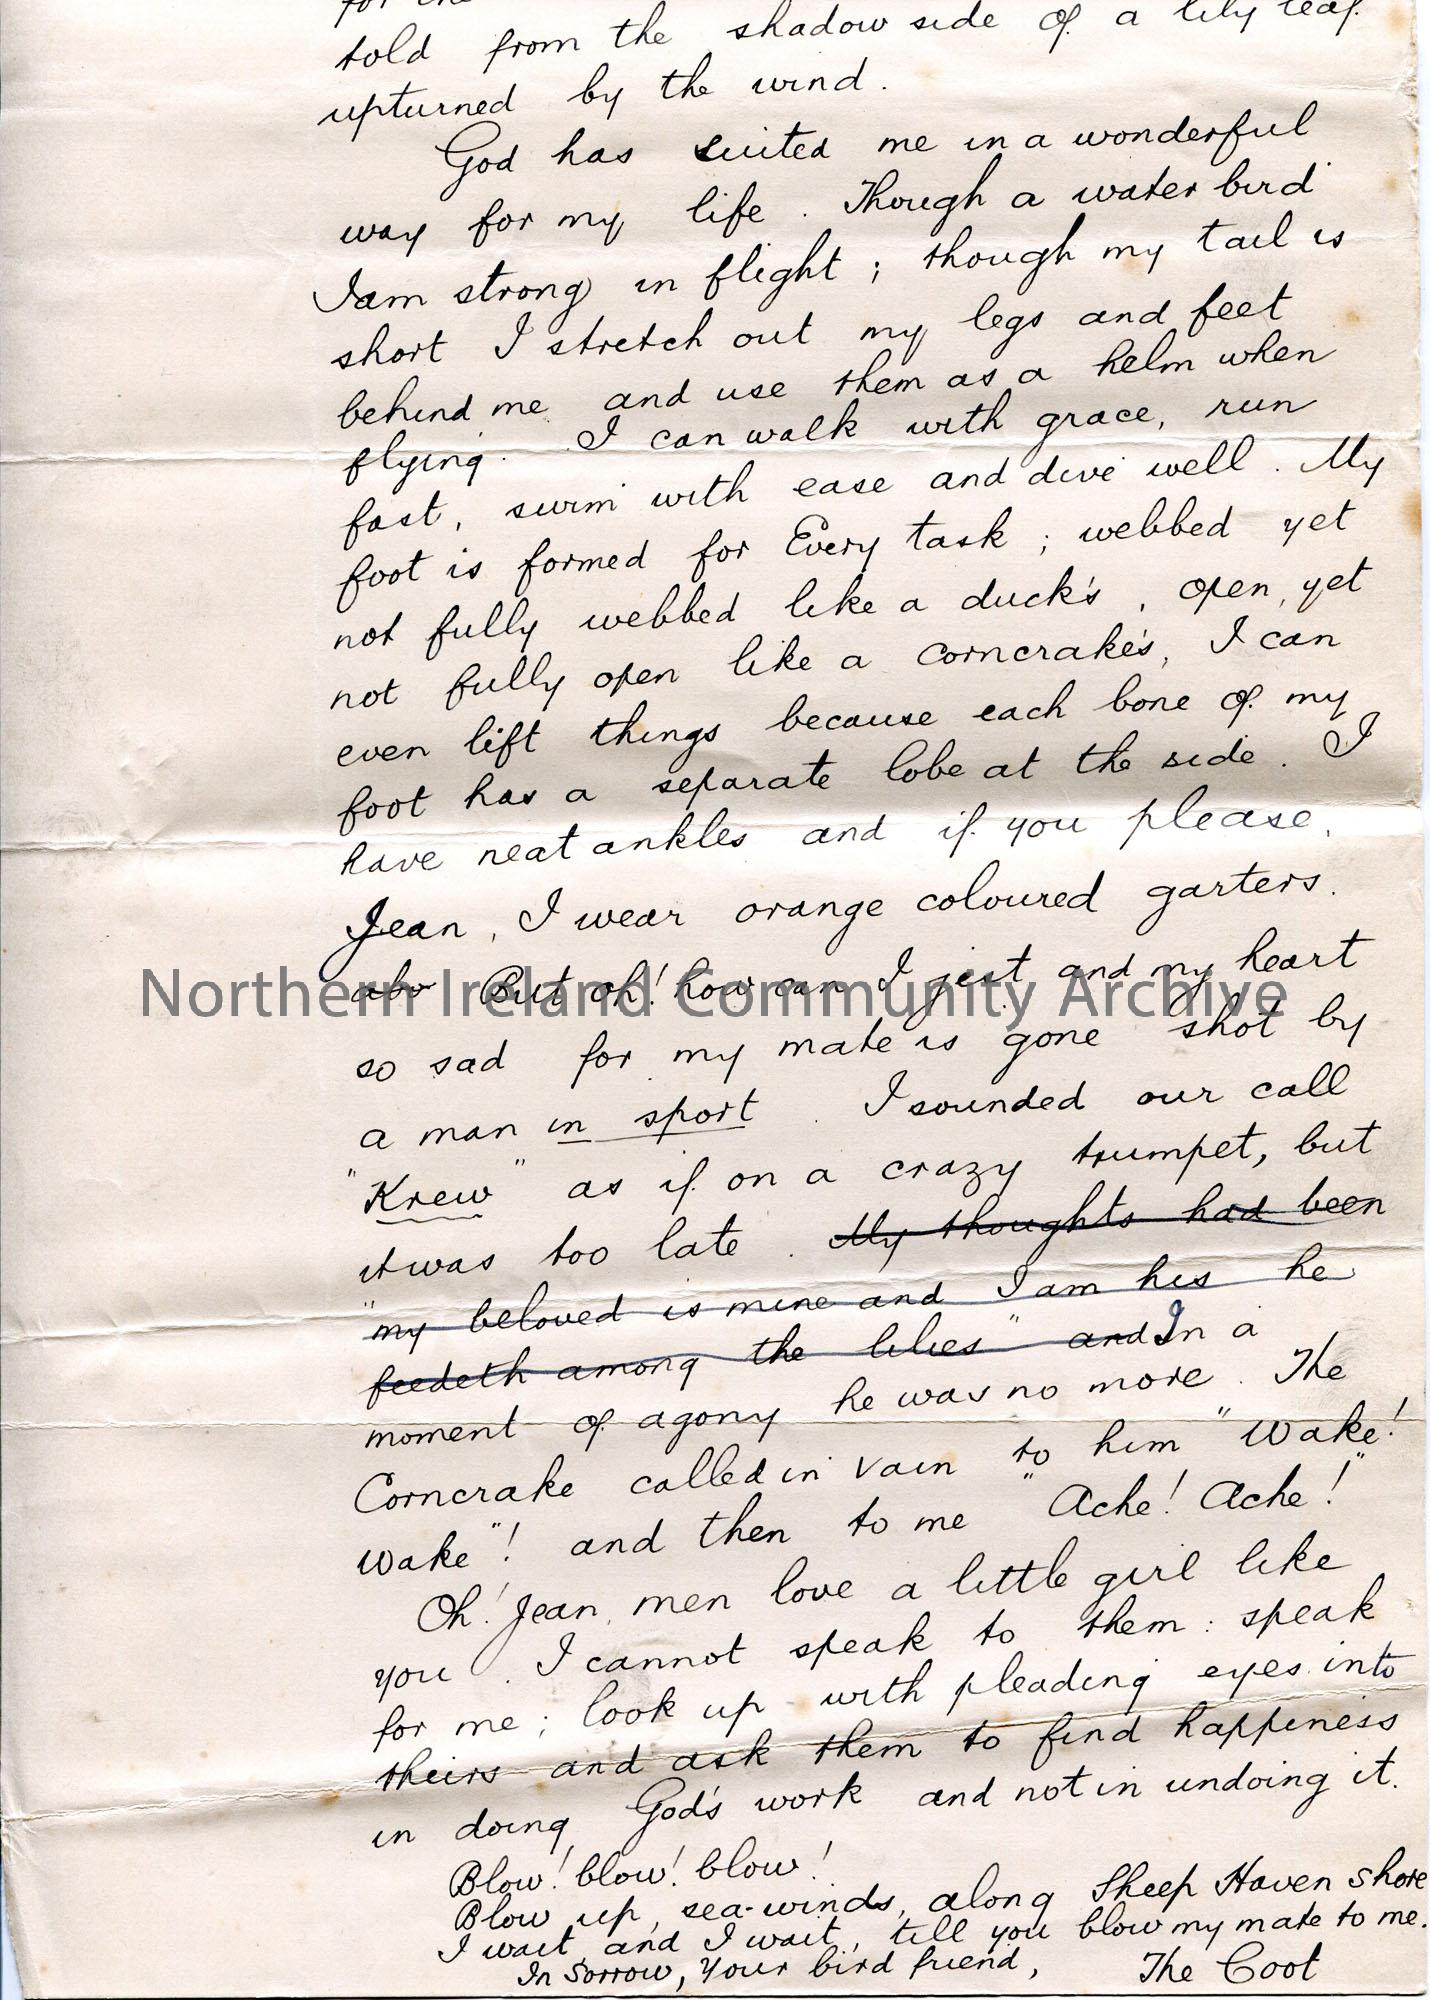 for the
told from the shadow side of a lily leaf
upturned by the wind.
God has suited me in a wonderful
way for my life. Though a water bird
I am strong in flight; though my tail is
short I stretch out my legs and feet
behind me and use them as a helm when
flying. I can walk with grace, run
fast, swim with ease and dive well. My
foot is formed for Every task; webbed yet
not fully webbed like a duck's, open, yet
not fully open like a corncrake's, I can
even lift things because each bone of my
foot has a separate lobe at the side. I
have neat ankles and if you please,
Jean, I wear orange coloured garters.
abo But oh! how can I jest and my heart
Northern Ireland Community Archive
so sad for my mate is gone shot by
a man in sport. I sounded our call
"Krew" as if on a crazy trumpet, but
it was too late. My thoughts had been
"my beloved is mine and I am his he
feedeth among the lilies" and In a
moment of agony he was no more. The
Corncrake called in vain to him "Wake!
Wake"! and then to me "Ache! Ache!"
Oh! Jean, men love a little girl like
you. I cannot speak to them: speak
for me; look up with pleading eyes into
theirs and ask them to find happiness
in doing God's work and not in undoing it.
Blow! blow! blow!
Blow up, sea-winds, along Sheep Haven shore
I wait and I wait, till you blow my mate to me.
In Sorrow, your bird friend, The Coot